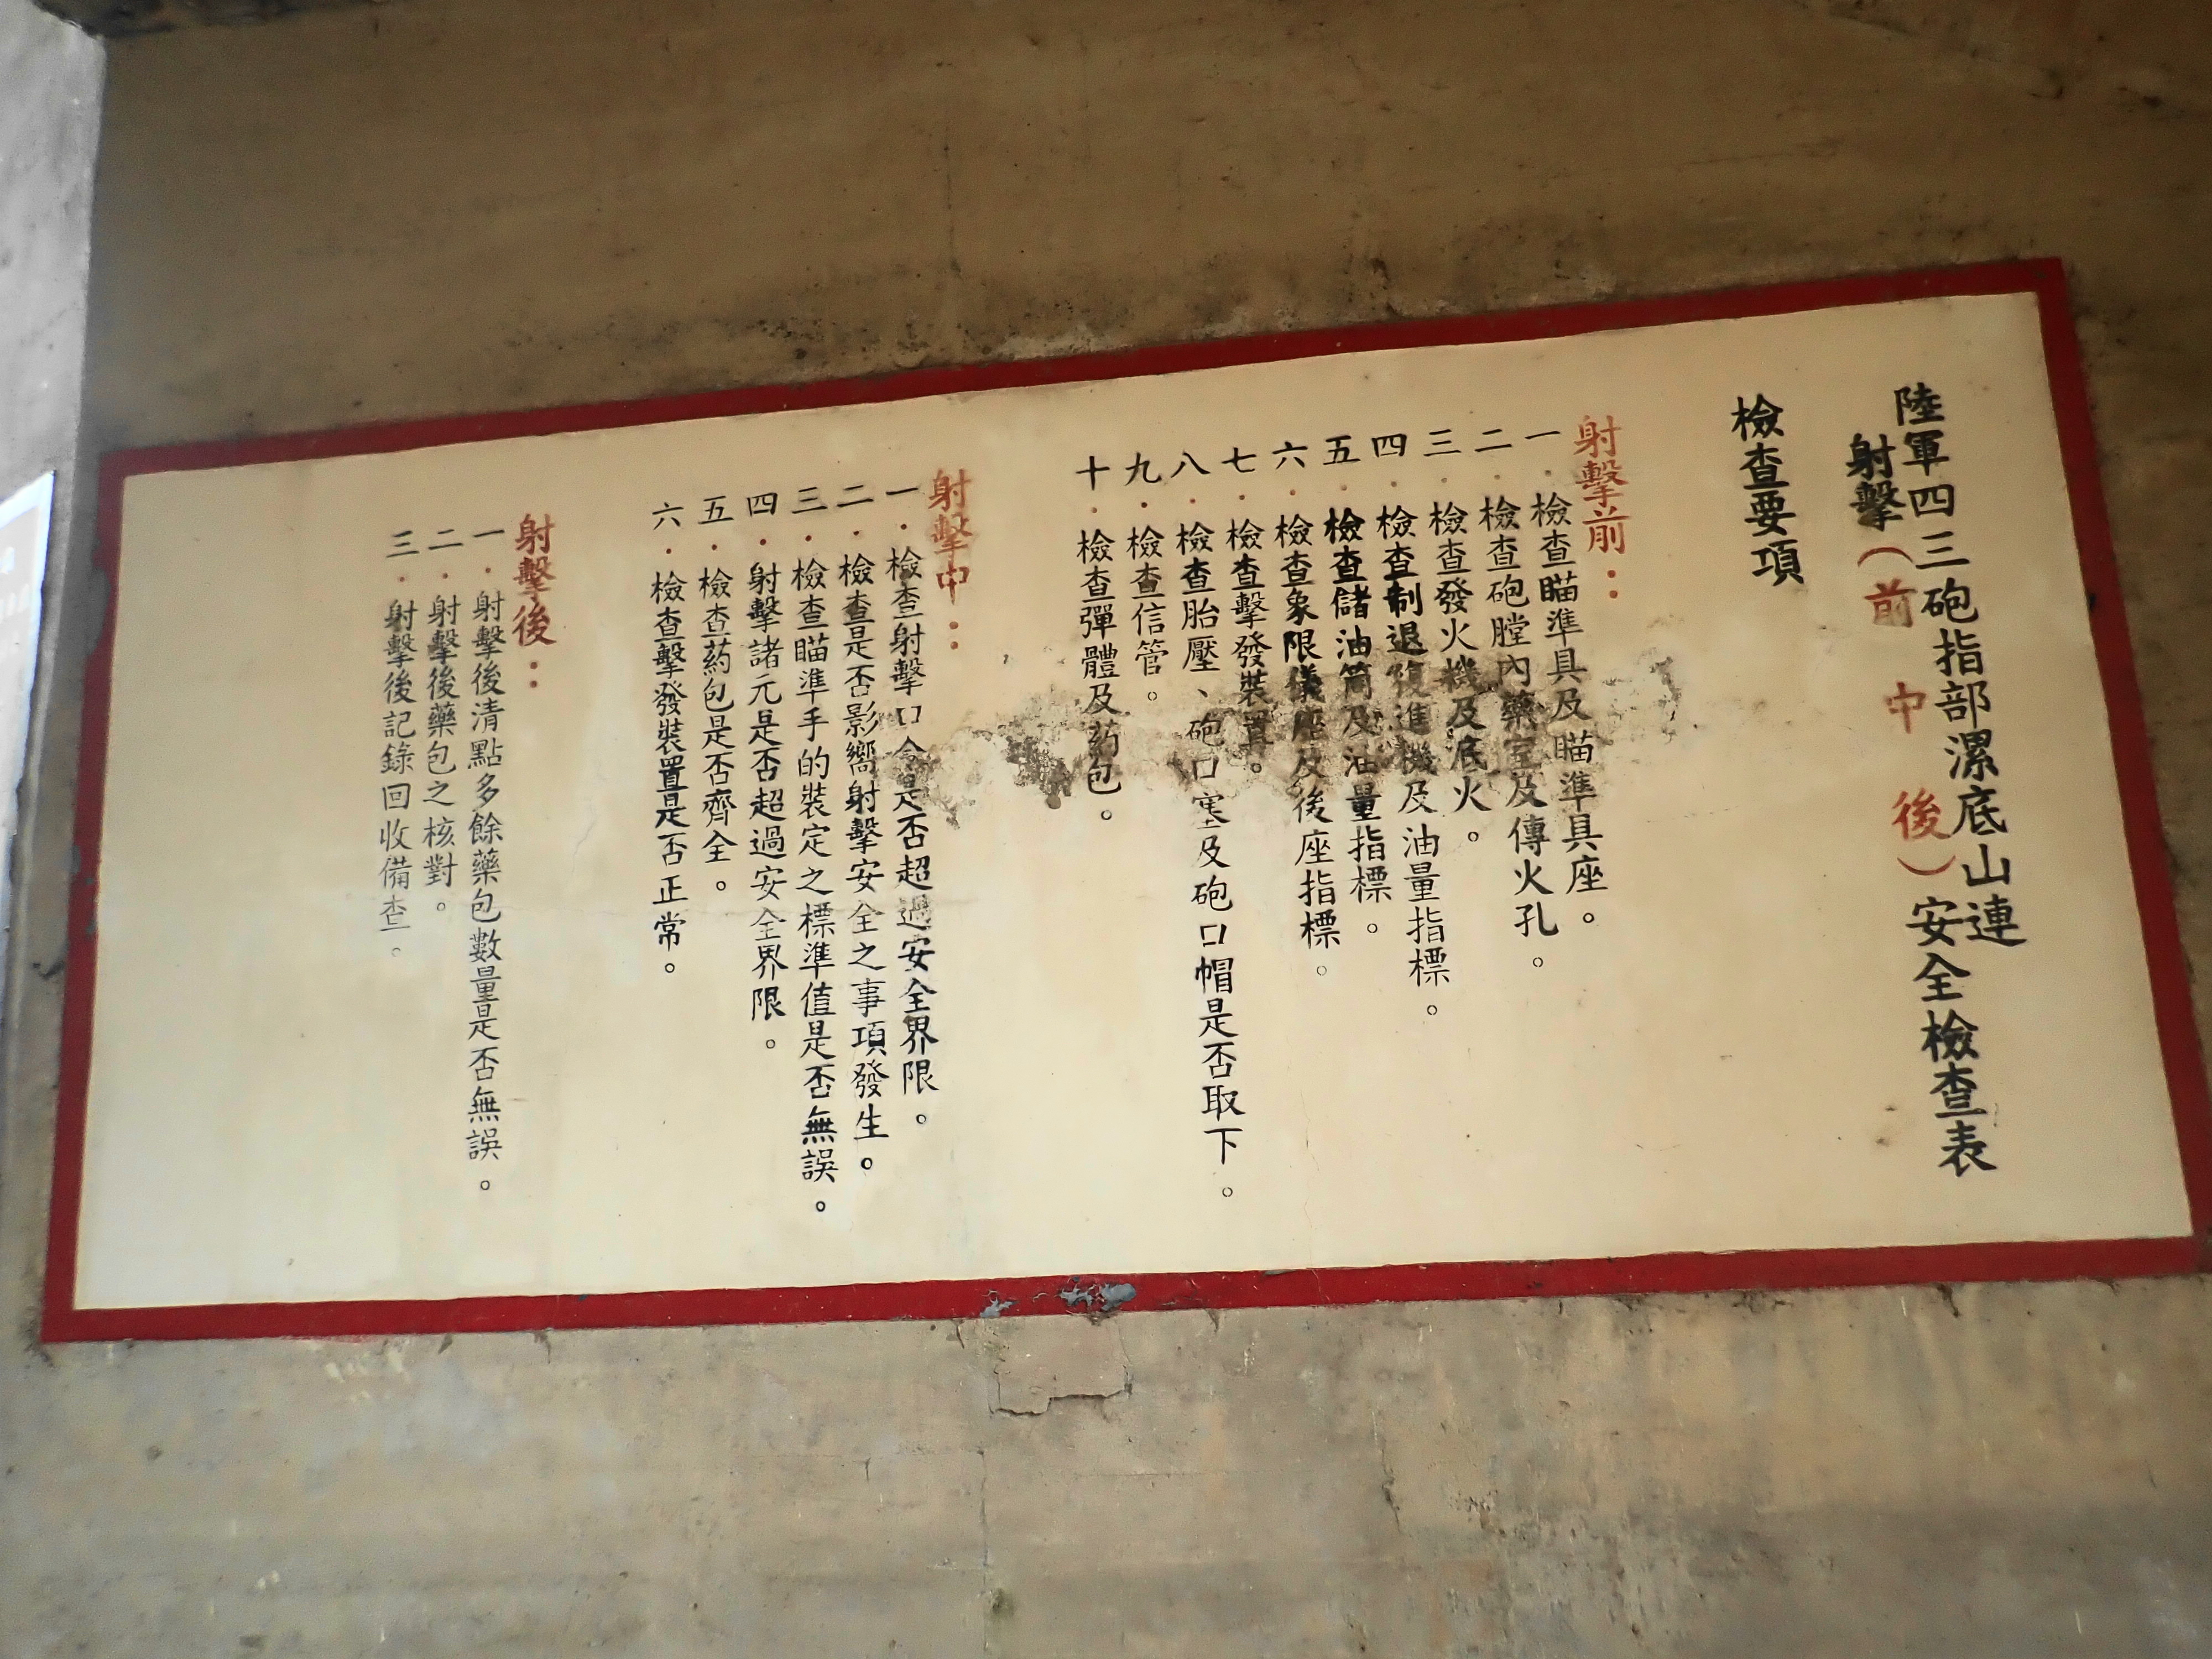 陸軍四三砲指部漯底山連
射擊(前 中 後)安全檢查表
檢查要項
射擊前：
一.檢查瞄準具及瞄準具座。
二.檢查砲膛內藥室及傳火孔。
三.檢查發火機及底火。
四.檢查制退復進機及油量指標。
五.檢查儲油筒及油量指標。
六.檢查象限儀座及後座指標。
七.檢查擊發裝置。
八.檢查胎壓、砲口塞及砲口帽是否取下。
九.檢查信管。
十.檢查彈體及葯包。
射擊中：
一.檢查射擊口令是否超過安全界限。
二.檢查是否影嚮射擊安全之事項發生。
三.檢查瞄準手的裝定之標準值是否無誤。
四.射擊諸元是否超過安全界限。
五.檢查葯包是否齊全。
六.檢查擊發裝置是否正常。
射擊後：
一.射擊後清點多餘藥包數量是否無誤。
二.射擊後藥包之核對。
三.射擊後記錄回收備查。